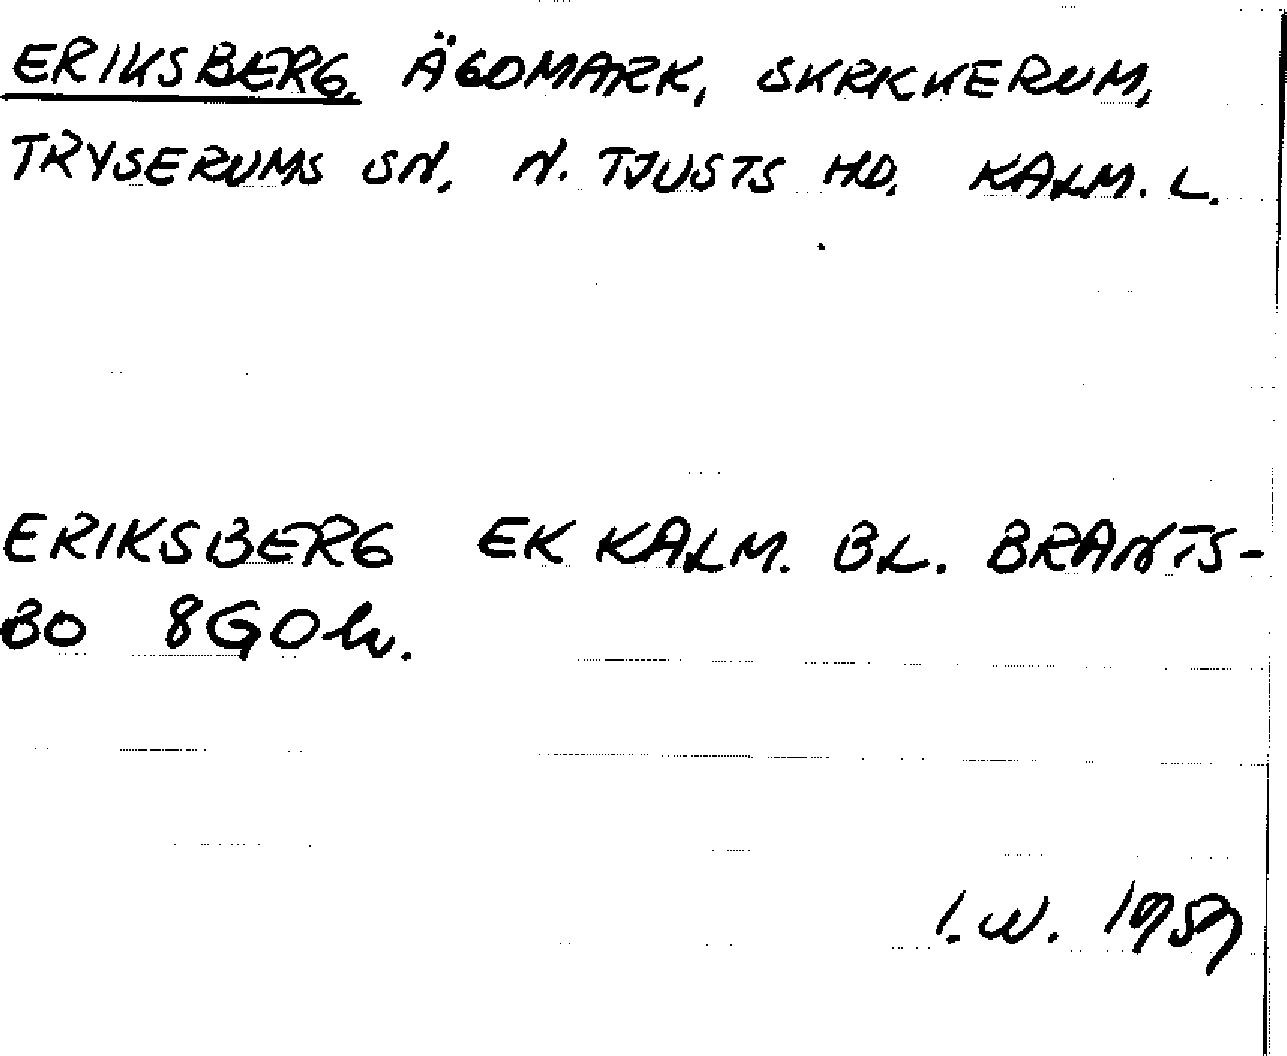 ERIKSBERG, ÄGOMARK, SKRIKKERUM,
TRYSERUMS SN, N. TJUSTS HD, KALM. L.
ERIKSBERG EK KALM. BL. BRANTS-
BO 8G0h.
I.W. 1959